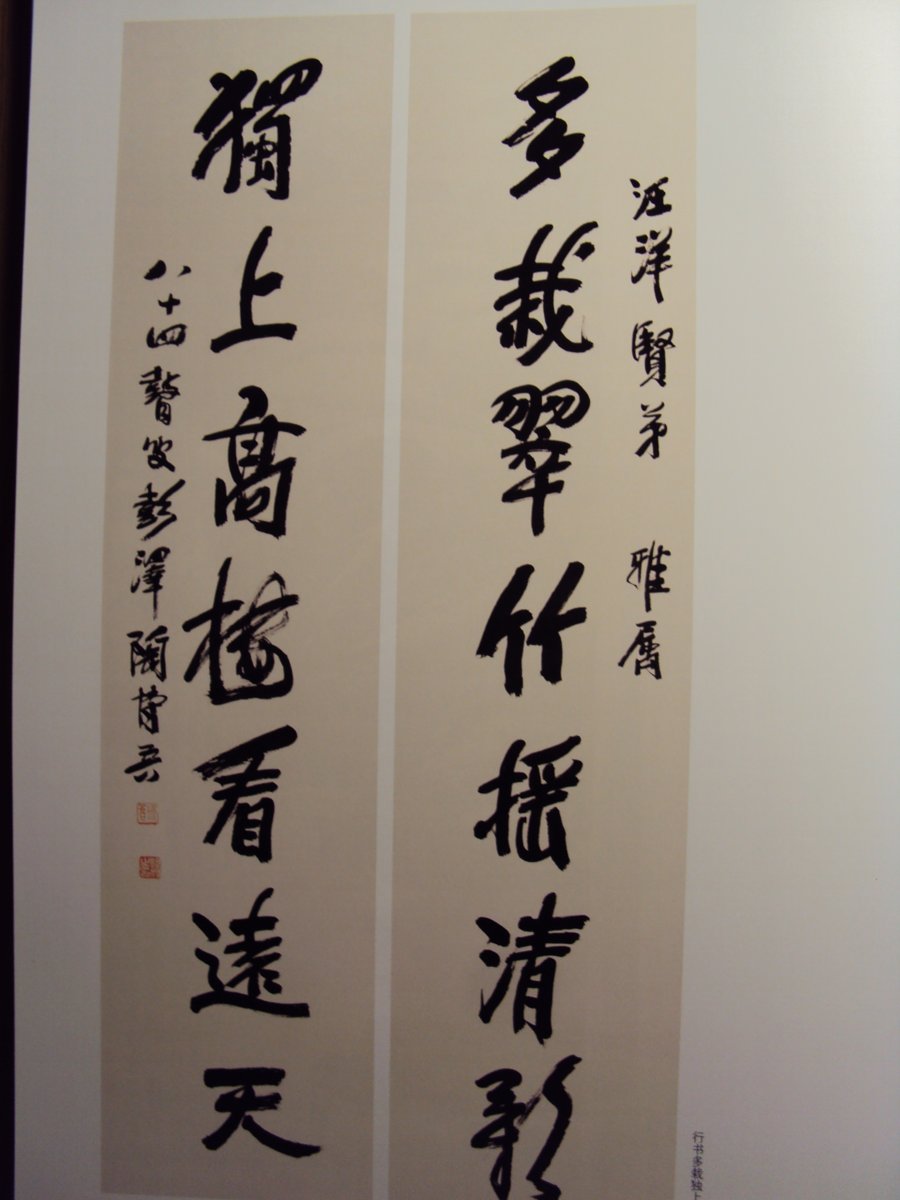 汪洋賢弟 雅屬
多栽翠竹摇清影
獨上高樓看遠天
八十四瞽叟彭澤陶博吾
行书多栽独上